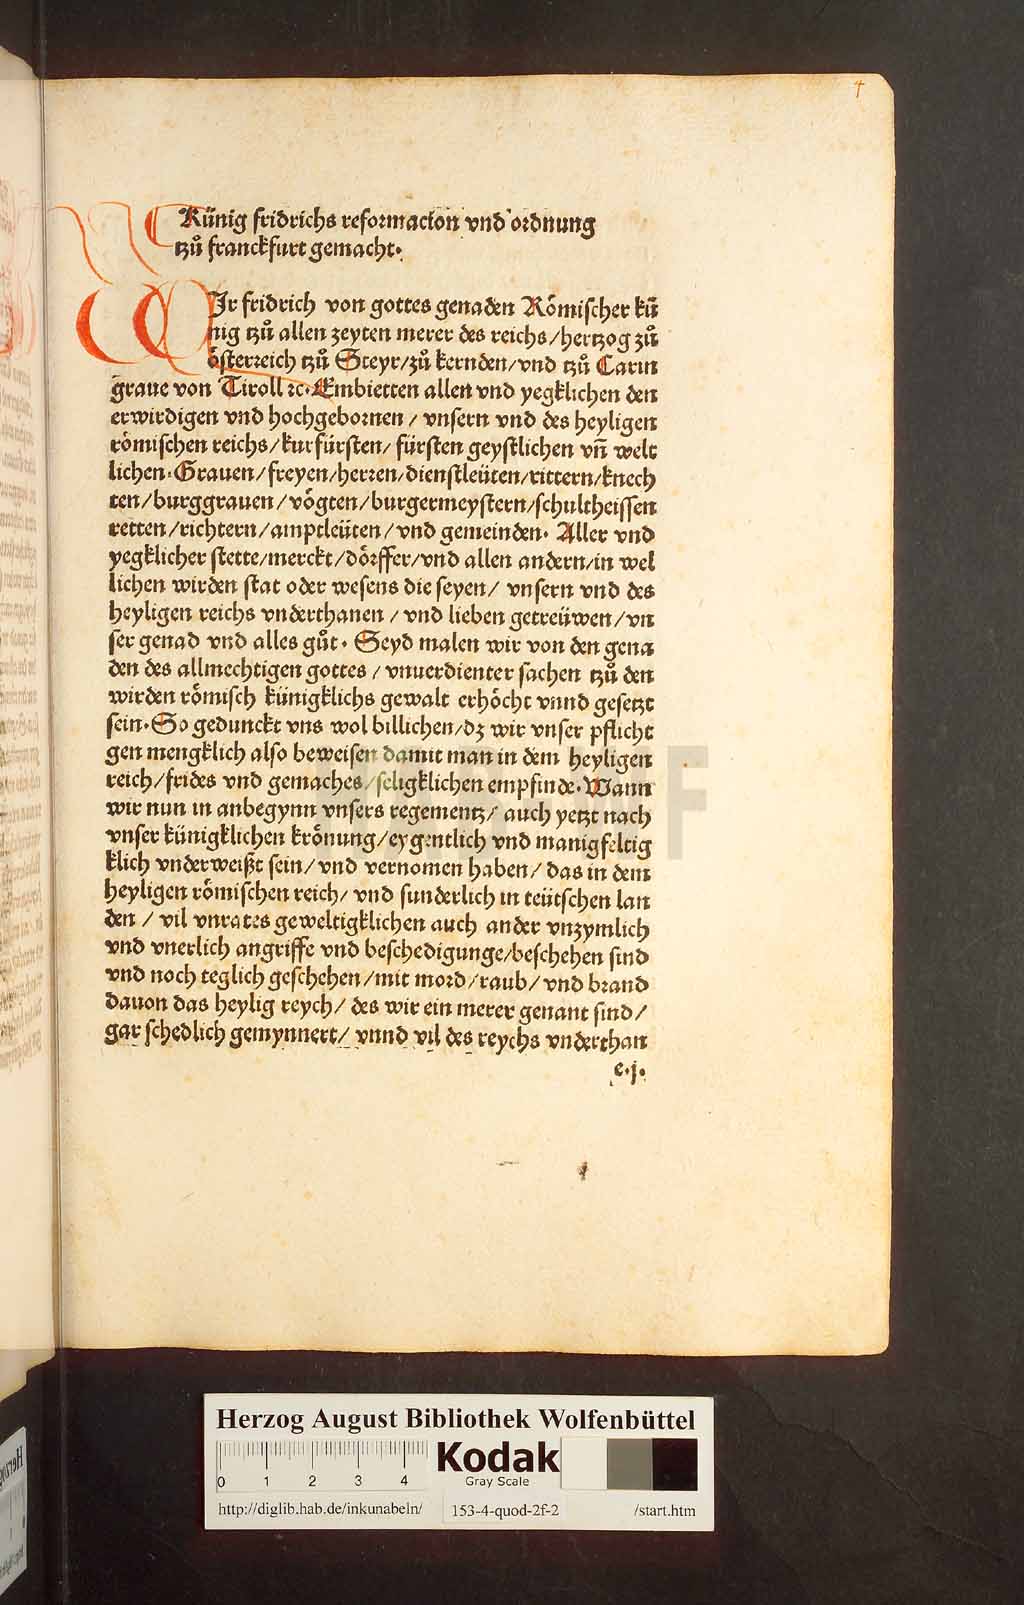 4
Künig fridrichs reformacion vnd ordnung
tzů franckfurt gemacht.
WIr fridrich von gottes genaden Römischer kü
nig tzů allen zeyten merer des reichs/hertzog zů
österreich tzů Steyr/zů kernden/vnd tzů Carin
graue von Tiroll ꝛc. Embietten allen vnd yegklichen den
erwirdigen vnd hochgebornen / vnsern vnd des heyligen
römischen reichs/kurfürsten/ fürsten geystlichen vn̄ welt
lichen. Grauen/freyen/herren/dienstleüten/rittern/knech
ten/burggrauen/vögten/burgermeystern/schultheissen
retten/richtern/amptleüten/vnd gemeinden. Aller vnd
yegklicher stette/merckt/dörffer/vnd allen andern/in wel
lichen wirden stat oder wesens die seyen/ vnsern vnd des
heyligen reichs vnderthanen / vnd lieben getreüwen/vn
ser genad vnd alles gůt. Seyd malen wir von den gena
den des allmechtigen gottes / vnuerdienter sachen tzů den
wirden römisch künigklichs gewalt erhöcht vnnd gesetzt
sein. So gedunckt vns wol billichen/dz wir vnser pflicht
gen mengklich also beweisen damit man in dem heyligen
reich/frides vnd gemaches/seligklichen empfinde. Wann
wir nun in anbegynn vnsers regementz/ auch yetzt nach
vnser künigklichen krönung/eygentlich vnd manigfeltig
klich vnderweißt sein/ vnd vernomen haben/ das in dem
heyligen römischen reich/ vnd sunderlich in teütschen lan
den / vil vnrates geweltigklichen auch ander vnzymlich
vnd vnerlich angriffe vnd beschedigunge/beschehen sind
vnd noch teglich geschehen/mit mord/raub/ vnd brand
dauon das heylig reych/ des wir ein merer genant sind/
gar schedlich gemynnert/ vnnd vil des reychs vnderthan
c.j.
Herzog August Bibliothek Wolfenbüttel
0 1 2 3 4
Kodak
Gray Scale
http://diglib.hab.de/inkunabeln/ 153-4-quod-2f-2 /start.htm